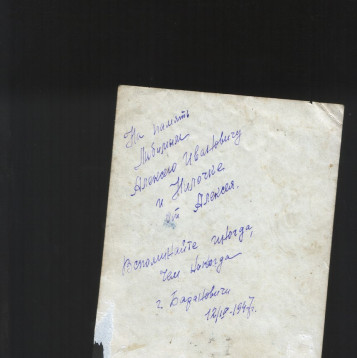 На память
Алексею Ивановичу
и Ниночке
от Алексея.
Вспоминайте иногда,
чем никогда
г. Барановичи